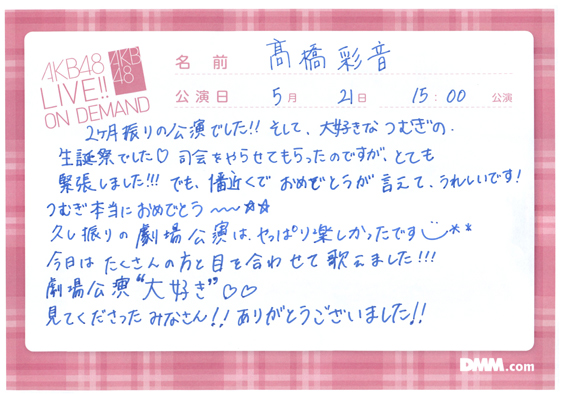 AKB48
LIVE!!
ON DEMAND
AKB
48
名前 髙橋彩音
公演日 5月 21日 15:00 公演
2ヶ月振りの公演でした!! そして、大好きなつむぎの
生誕祭でした♡ 司会をやらせてもらったのですが、とても
緊張しました!!! でも、1番近くで おめでとうが言えて、うれしいです!
つむぎ本当におめでとう〜〜☆☆
久し振りの劇場公演は、やっぱり楽しかったです
今日は たくさんの方と目を合わせて歌えました!!!
劇場公演“大好き”♡♡
見てくださったみなさん!! ありがとうございました!!
DMM.com